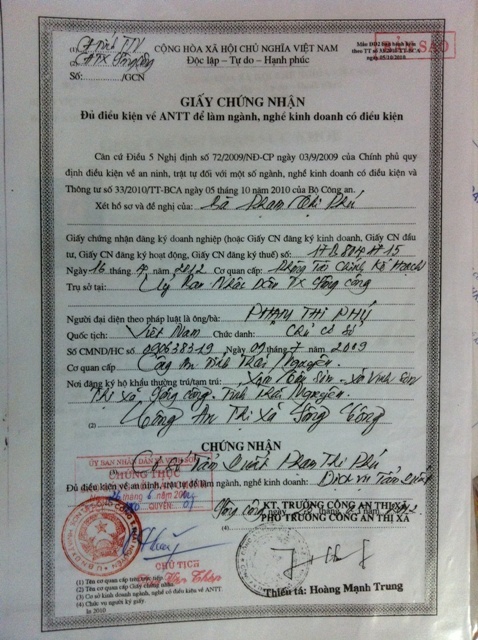 (1) CA tỉnh TN
CỘNG HÒA XÃ HỘI CHỦ NGHĨA VIỆT NAM
Mẫu Đ02 ban hành kèm
theo TT số 33/2010/TT-BCA
ngày 05/10/2010
SAO
(2) CATX Sông Công
Độc lập - Tự do - Hạnh phúc
Số: /GCN
GIẤY CHỨNG NHẬN
Đủ điều kiện về ANTT để làm ngành, nghề kinh doanh có điều kiện
Căn cứ Điều 5 Nghị định số 72/2009/NĐ-CP ngày 03/9/2009 của Chính phủ quy
định điều kiện về an ninh, trật tự đối với một số ngành, nghề kinh doanh có điều kiện và
Thông tư số 33/2010/TT-BCA ngày 05 tháng 10 năm 2010 của Bộ Công an.
Xét hồ sơ và đề nghị của: Bà Phạm Thị Phú
Giấy chứng nhận đăng ký doanh nghiệp (hoặc Giấy CN đăng ký kinh doanh, Giấy CN đầu
tư, Giấy CN đăng ký hoạt động, Giấy CN đăng ký thuế) số:
Ngày 16 tháng 7 năm 2012 Cơ quan cấp: Phòng Tài Chính Kế Hoạch
Trụ sở tại: Ủy Ban Nhân Dân TX Sông Công
Người đại diện theo pháp luật là ông/bà: PHẠM THỊ PHÚ
Quốc tịch: Việt Nam Chức danh: Chủ cơ sở
Số CMND/HC số 090638319 Ngày 09 tháng 7 năm 2009
Cơ quan cấp Công An Tỉnh Thái Nguyên.
Nơi đăng ký hộ khẩu thường trú/tạm trú: Xóm Tân Sơn - Xã Vinh Sơn
Thị Xã Sông Công - Tỉnh Thái Nguyên.
(2) Công An Thị Xã Sông Công
CHỨNG NHẬN
ỦY BAN NHÂN DÂN XÃ VINH SƠN
CHỨNG THỰC
(3) Cơ sở Tẩm Quất Phạm Thị Phú
Đủ điều kiện về an ninh, trật tự để làm ngành, nghề kinh doanh: Dịch vụ Tẩm Quất
Sông Công, ngày
KT. TRƯỞNG CÔNG AN THỊ XÃ
(4) PHÓ TRƯỞNG CÔNG AN THỊ XÃ
CHỦ TỊCH
(1) Tên cơ quan cấp trên trực tiếp.
(2) Tên cơ quan cấp Giấy chứng nhận.
(3) Cơ sở kinh doanh, nghề có điều kiện về ANTT.
(4) Chức vụ người ký giấy.
In 2010
Thiếu tá: Hoàng Mạnh Trung